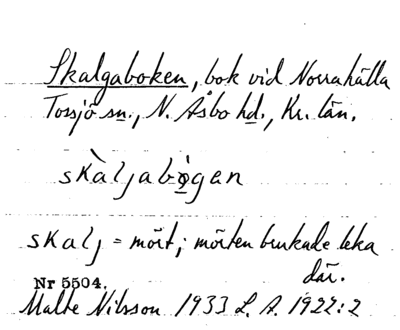 Skalgaboken, bok vid Norrahälla
Tossjö sn., N. Åsbo hd., Kr. län.
skàljabògen
skalj = mört; mörten brukade leka
där.
Nr 5504.
Malte Nilsson 1933 L. A. 1922:2